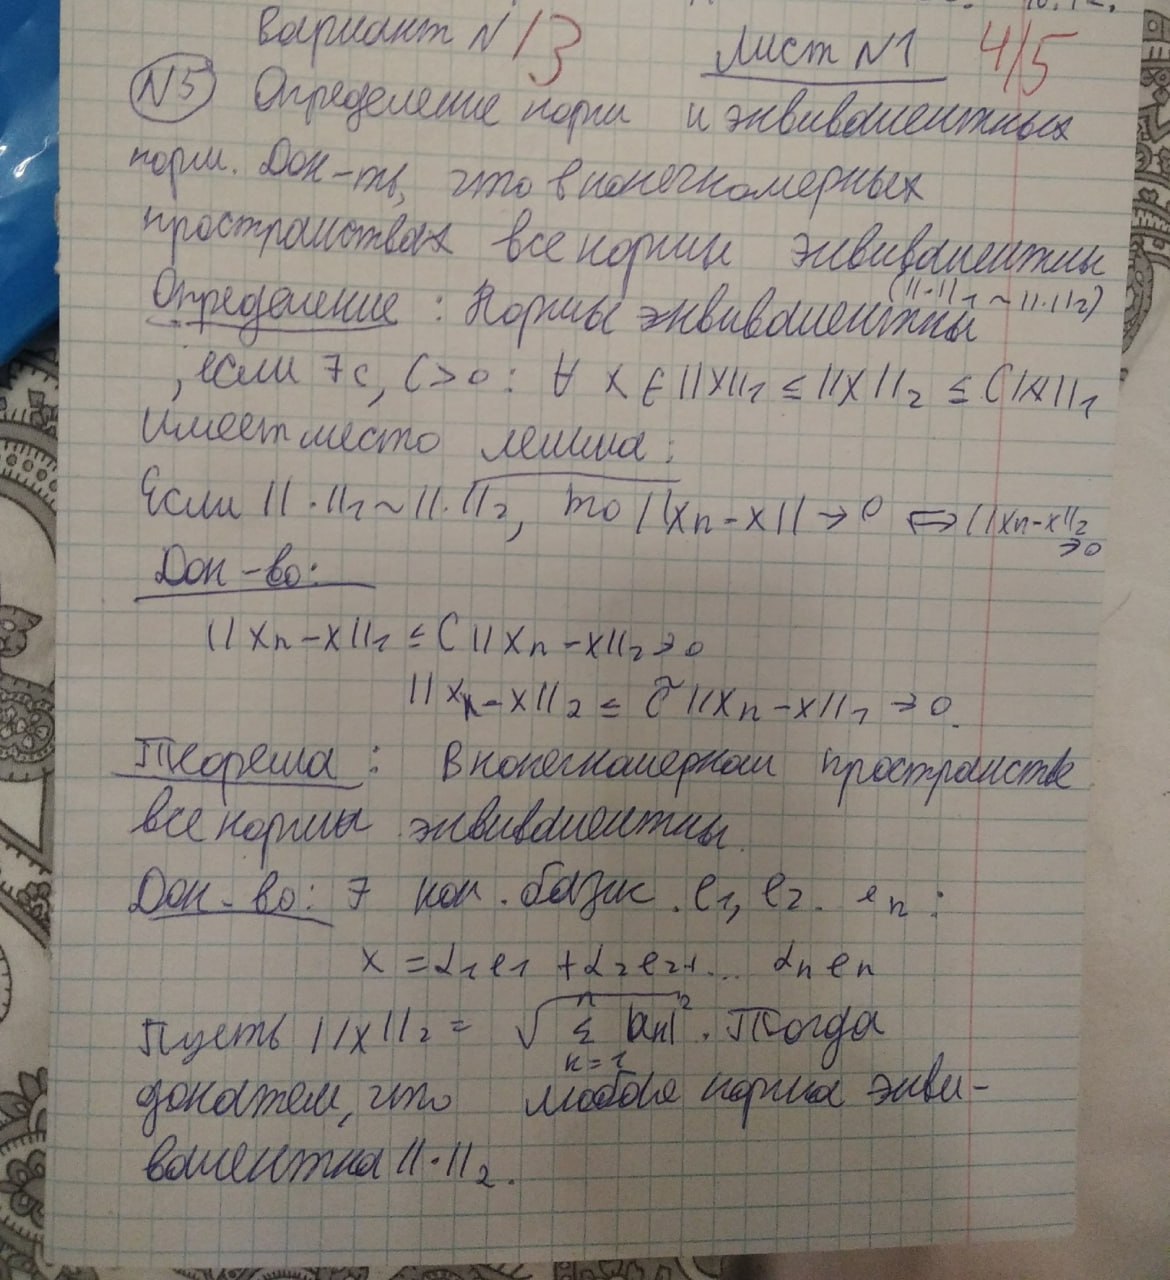 Вариант N 13 Лист N1 4/5
N5 Определение норм и эквивалентных
норм. Док-ть, что в конечномерных
пространствах все нормы эквивалентны
(||·||₁ ~ ||·||₂)
Определение: Нормы эквивалентны
, если ∃ c, C > 0 : ∀ x ∈ ||x||₁ ≤ ||x||₂ ≤ C||x||₁
Имеет место лемма:
Если ||·||₁ ~ ||·||₂, то ||xn - x|| → 0 ⇔ ||xn - x||₂ → 0
Док-во:
||xn - x||₁ ≤ C ||xn - x||₂ → 0
||xn - x||₂ ≤ C̃ ||xn - x||₁ → 0.
Теорема: В конечномерном пространстве
все нормы эквивалентны.
Док-во: ∃ кон. базис. e₁, e₂. en :
x = α₁e₁ + α₂e₂+... αnen
Пусть ||x||₂ = √ n Σ k=1 |αk|². Тогда
докажем, что любая норма экви-
валентна ||·||₂.